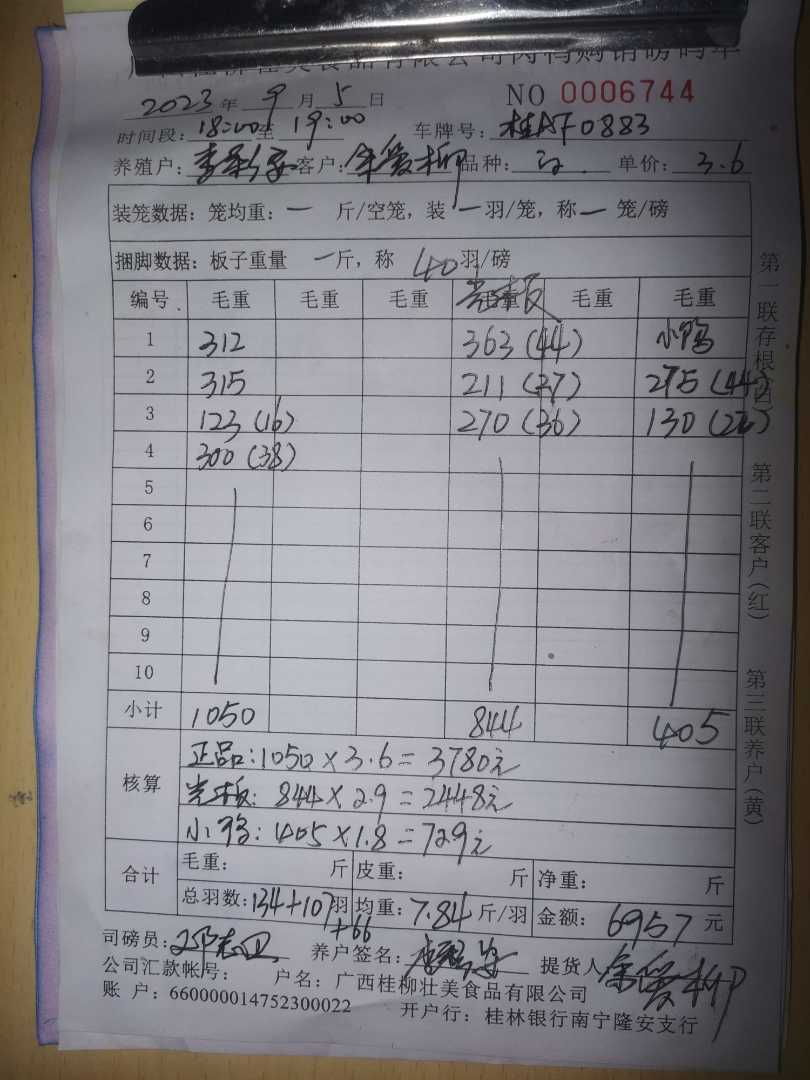 食品有限公司肉鸭购销磅码单
2023年 9月 5日 NO 0006744
时间段: 18:00至 19:00 车牌号: 桂AF0883
养殖户: 客户: 余爱柳 品种: 单价: 3.6
装笼数据: 笼均重: 一 斤/空笼, 装 一 羽/笼, 称 一 笼/磅
捆脚数据: 板子重量 一斤, 称 40羽/磅
编号 毛重 毛重 毛重 光板 毛重 毛重
1 312 363 (44) 小鸭
2 315 211 (27) 275 (44)
3 123 (16) 270 (36) 130 (22)
4 300 (38)
5
6
7
8
9
10
小计 1050 844 405
核算 正品: 1050 × 3.6 = 3780元
光板: 844 × 2.9 = 2448元
小鸭: 405 × 1.8 = 729元
合计 毛重: 斤 皮重: 斤 净重: 斤
总羽数: 134+107羽 均重: 7.84 斤/羽 金额: 6957 元
+66
司磅员: 邓志卫 养户签名: 提货人 余爱柳
公司汇款帐号: 户名: 广西桂柳壮美食品有限公司
账 户: 660000014752300022 开户行: 桂林银行南宁隆安支行
第一联存根(白) 第二联客户(红) 第三联养户(黄)